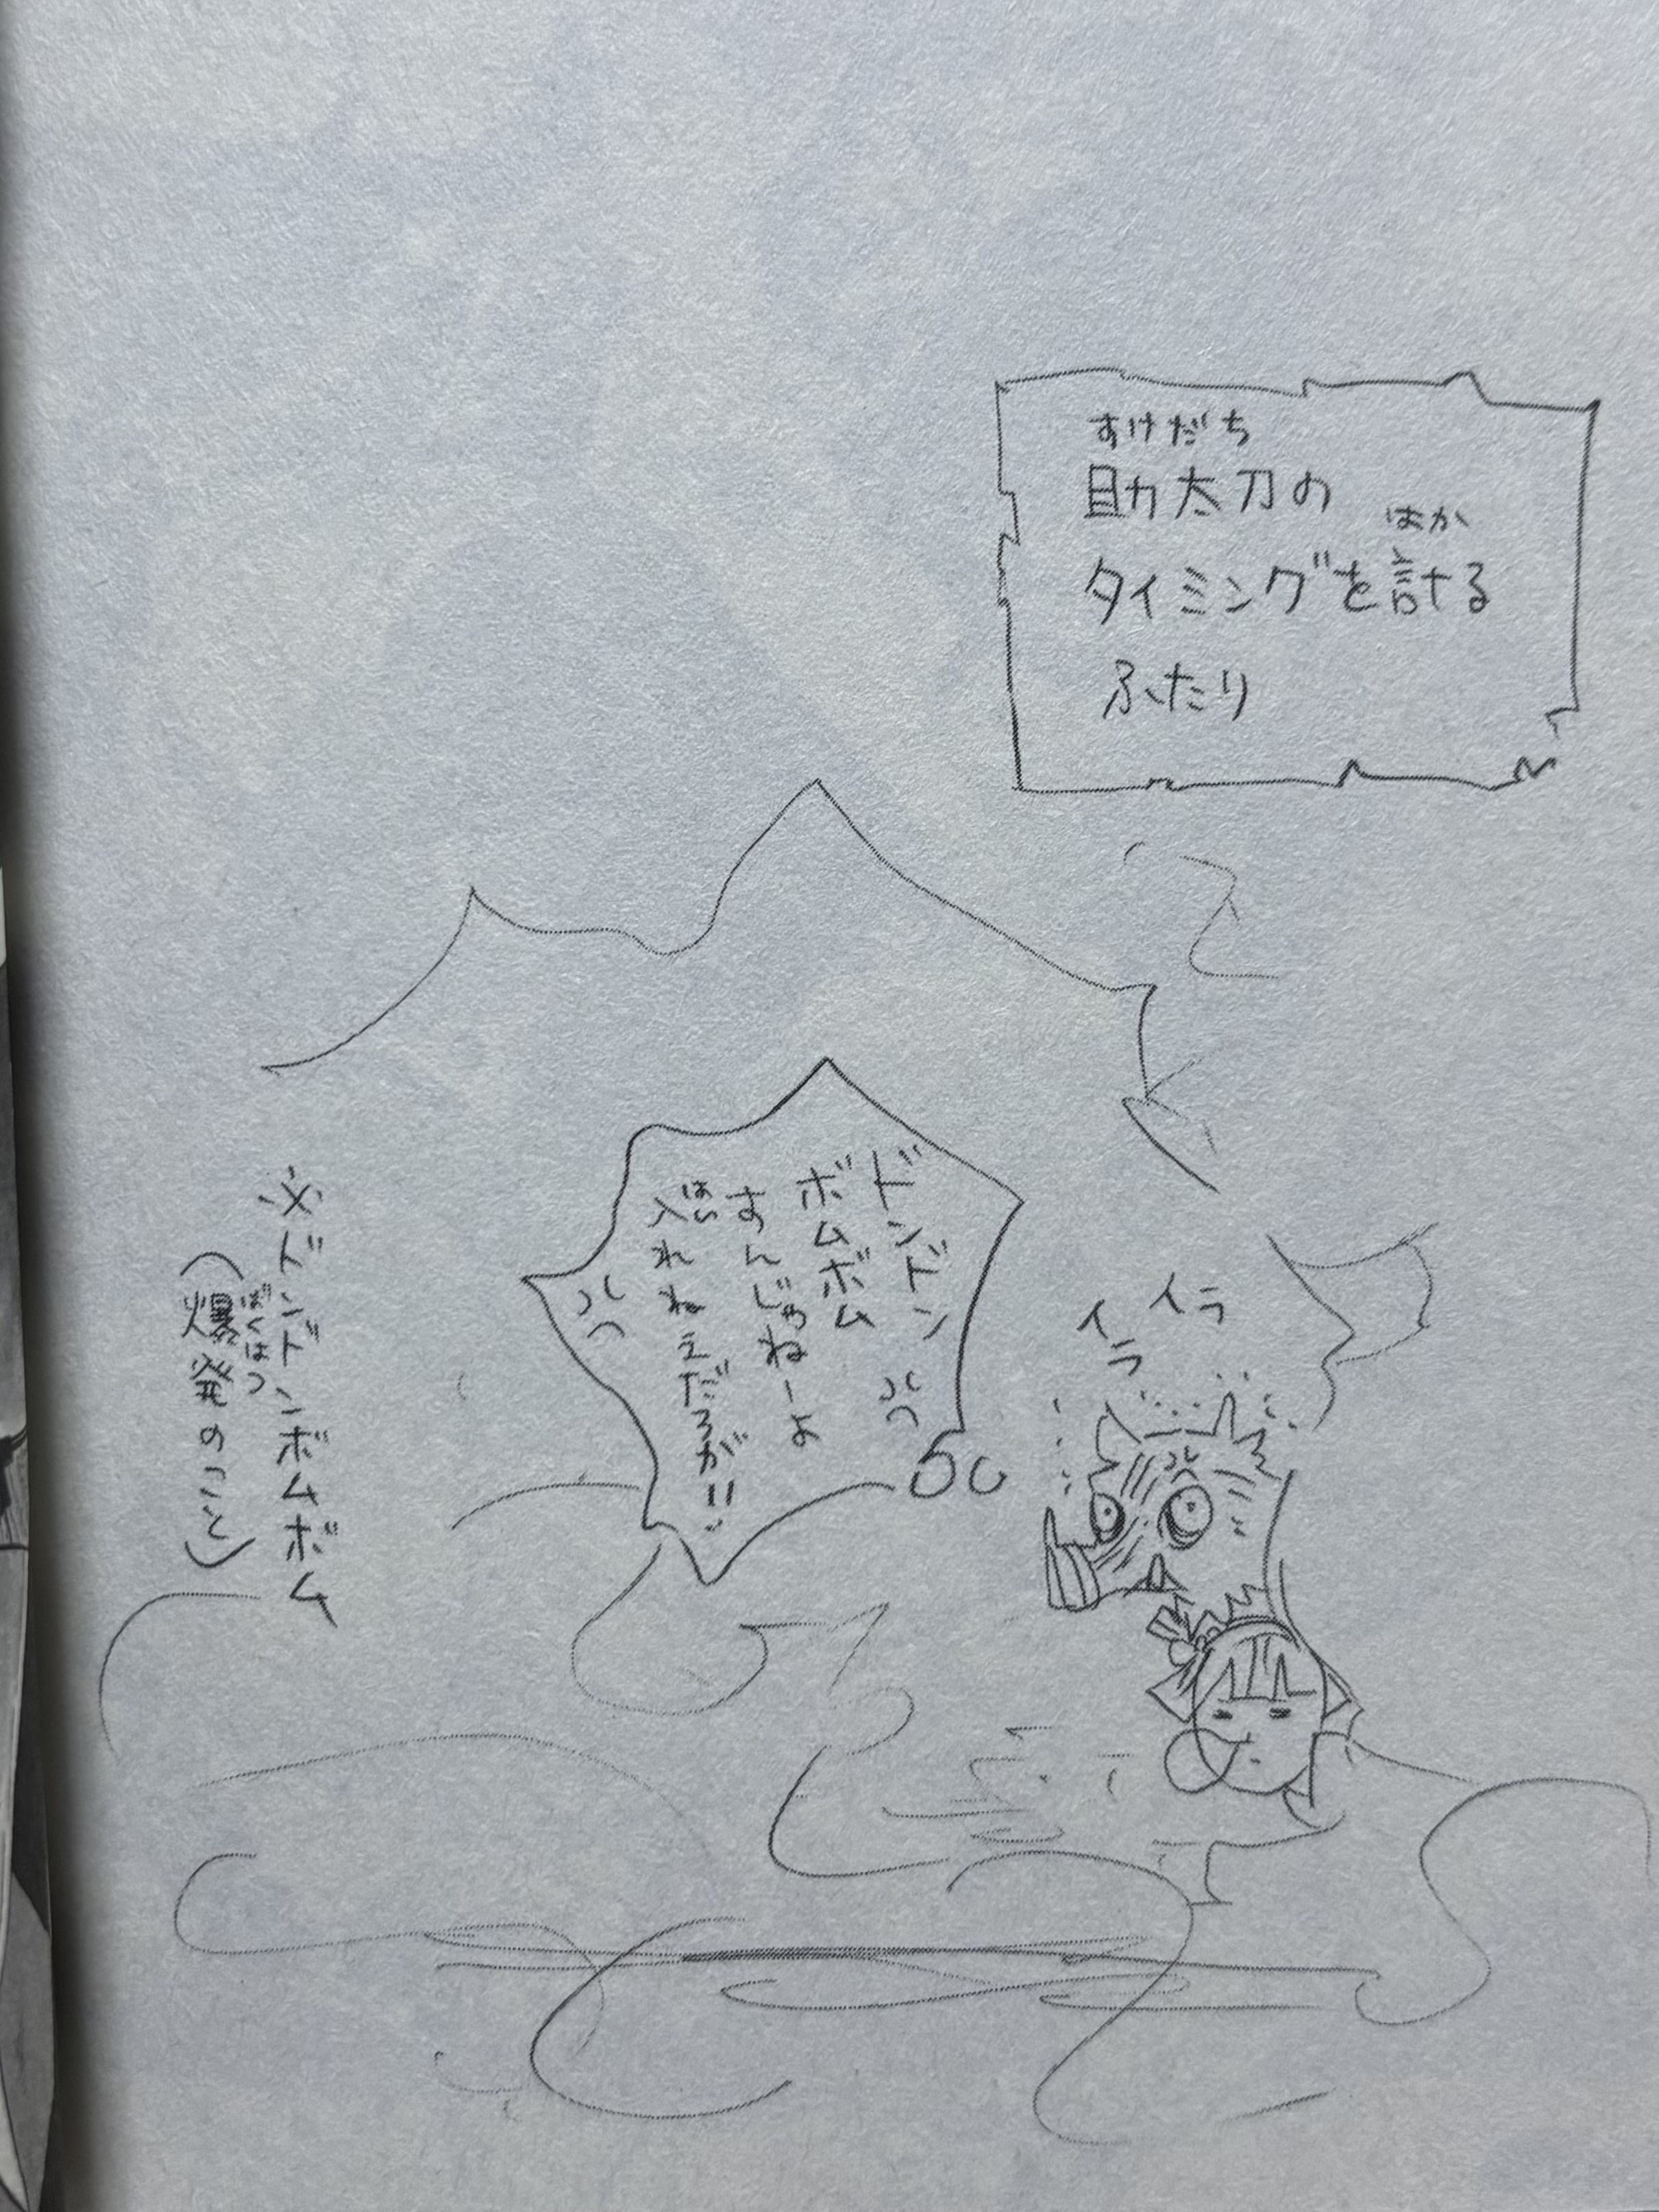 すけだち
助太刀の
はか
タイミングを計る
ふたり
イラ
イラ
ドンドン
ボムボム
すんじゃねーよ
はい
入れねえだろが!!
※ドンドンボムボム
ばくはつ
(爆発のこと)